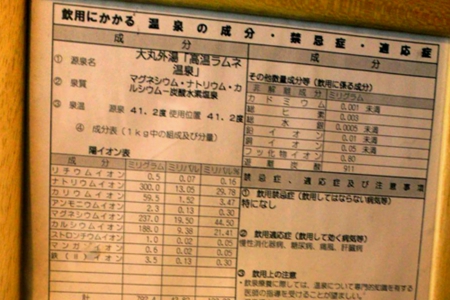 飲用にかかる 温泉の成分・禁忌症・適応症
成 分
① 源泉名 大丸外湯「高温ラムネ
温泉」
② 泉質 マグネシウム・ナトリウム・カ
ルシウムー炭酸水素塩泉
③ 泉温 源泉 41.2度 使用位置 41.2度
④ 成分表(1kg中の組成及び分量)
陽イオン表
成 分 ミリグラム ミリバル ミリバル%
リチウムイオン 0.5 0.07 0.16
ナトリウムイオン 300.0 13.05 29.78
カリウムイオン 59.5 1.52 3.47
アンモニウムイオン 0.13 0.30
マグネシウムイオン 237.0 19.50 44.50
カルシウムイオン 188.0 9.38 21.41
ストロンチウムイオン 1.0 0.02 0.05
マンガンイオン 0.02 0.05
鉄(Ⅱ)イオン 3.5 0.13 0.30
成 分
その他数量成分等(飲用に係る成分)
非解離成分 ミリグラム
カドミウム 0.001 未満
総ヒ素 0.003
総水銀 0.0005 未満
鉛イオン 0.01 未満
銅イオン 0.05 未満
フッ化物イオン 0.80
遊離炭酸 911
禁忌症、適応症及び注意事項
① 飲用禁忌症(飲用してはならない病気等)
特になし
② 飲用適応症(飲用して効く病気等)
慢性消化器病、糖尿病、痛風、肝臓病
③ 飲用上の注意
・飲泉療養に際しては、温泉について専門的知識を有する
医師の指導を受けることが望ましい。